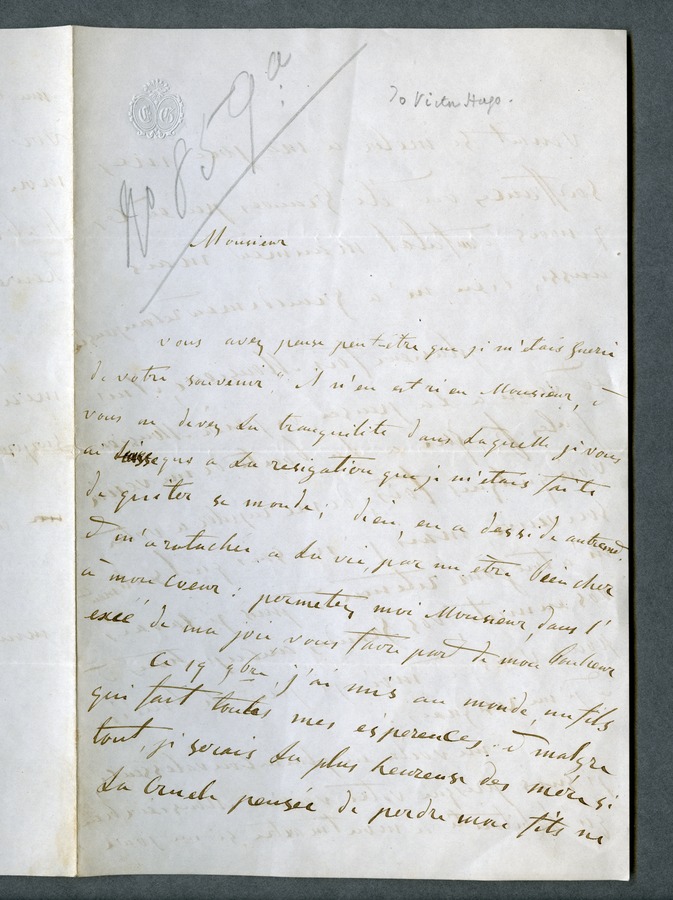 No 859a:
To Victor Hugo.
Monsieur
vous avez pensé peut-être que je m'étais guerie
de votre souvenir. il n'en est rien Monsieur, et
vous ne devez la tranquilité dans laquelle je vous
ai laissé qu'a la resigation que je m'étais faite
de quiter se monde; dieu, en a desside autrement
et m'a ratachee a la vie, par un être bien cher
à mon coeur: permetez moi Monsieur, dans l'
excé de ma joie vous faire part de mon bonheur
Ce 19 9bre, j'ai mis au monde, un fils
qui fait toutes mes ésperences. et malgre
tout, je serais la plus heureuse des mére si
la cruele pensée de perdre mon fils ne